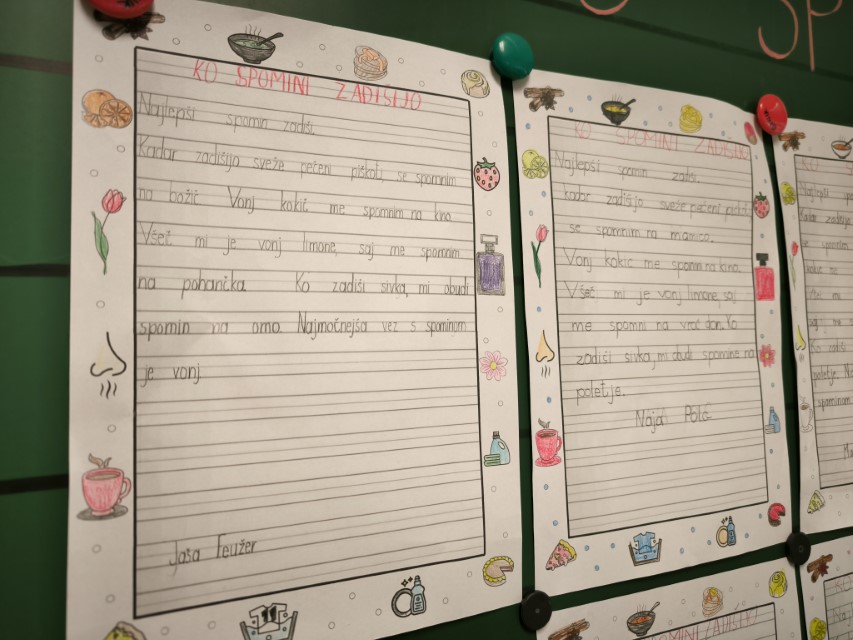 SP
KO SPOMINI ZADIŠIJO
Najlepši spomin zadiši.
Kadar zadišijo sveže pečeni piškoti, se spomnim
na božič. Vonj kokic me spomnim na kino.
Všeč mi je vonj limone, saj me spomnim
na pohančka. Ko zadiši sivka, mi obudi
spomin na omo. Najmočnejša vez s spominom
je vonj
Jaša Feužer
KO SPOMINI ZADIŠIJO
Najlepši spomin zadiši.
Kadar zadišijo sveže pečeni piškoti,
se spomnim na mamico.
Vonj kokic me spomni na kino.
Všeč mi je vonj limone, saj
me spomni na vroč dan. Ko
zadiši sivka, mi obudi spomine na
poletje.
Najdi
KO
Najlepši
Kadar zadišijo
se spomnim
Ko zadiši
poletje.
spominom
KO SPOMINI ZADIŠIJO